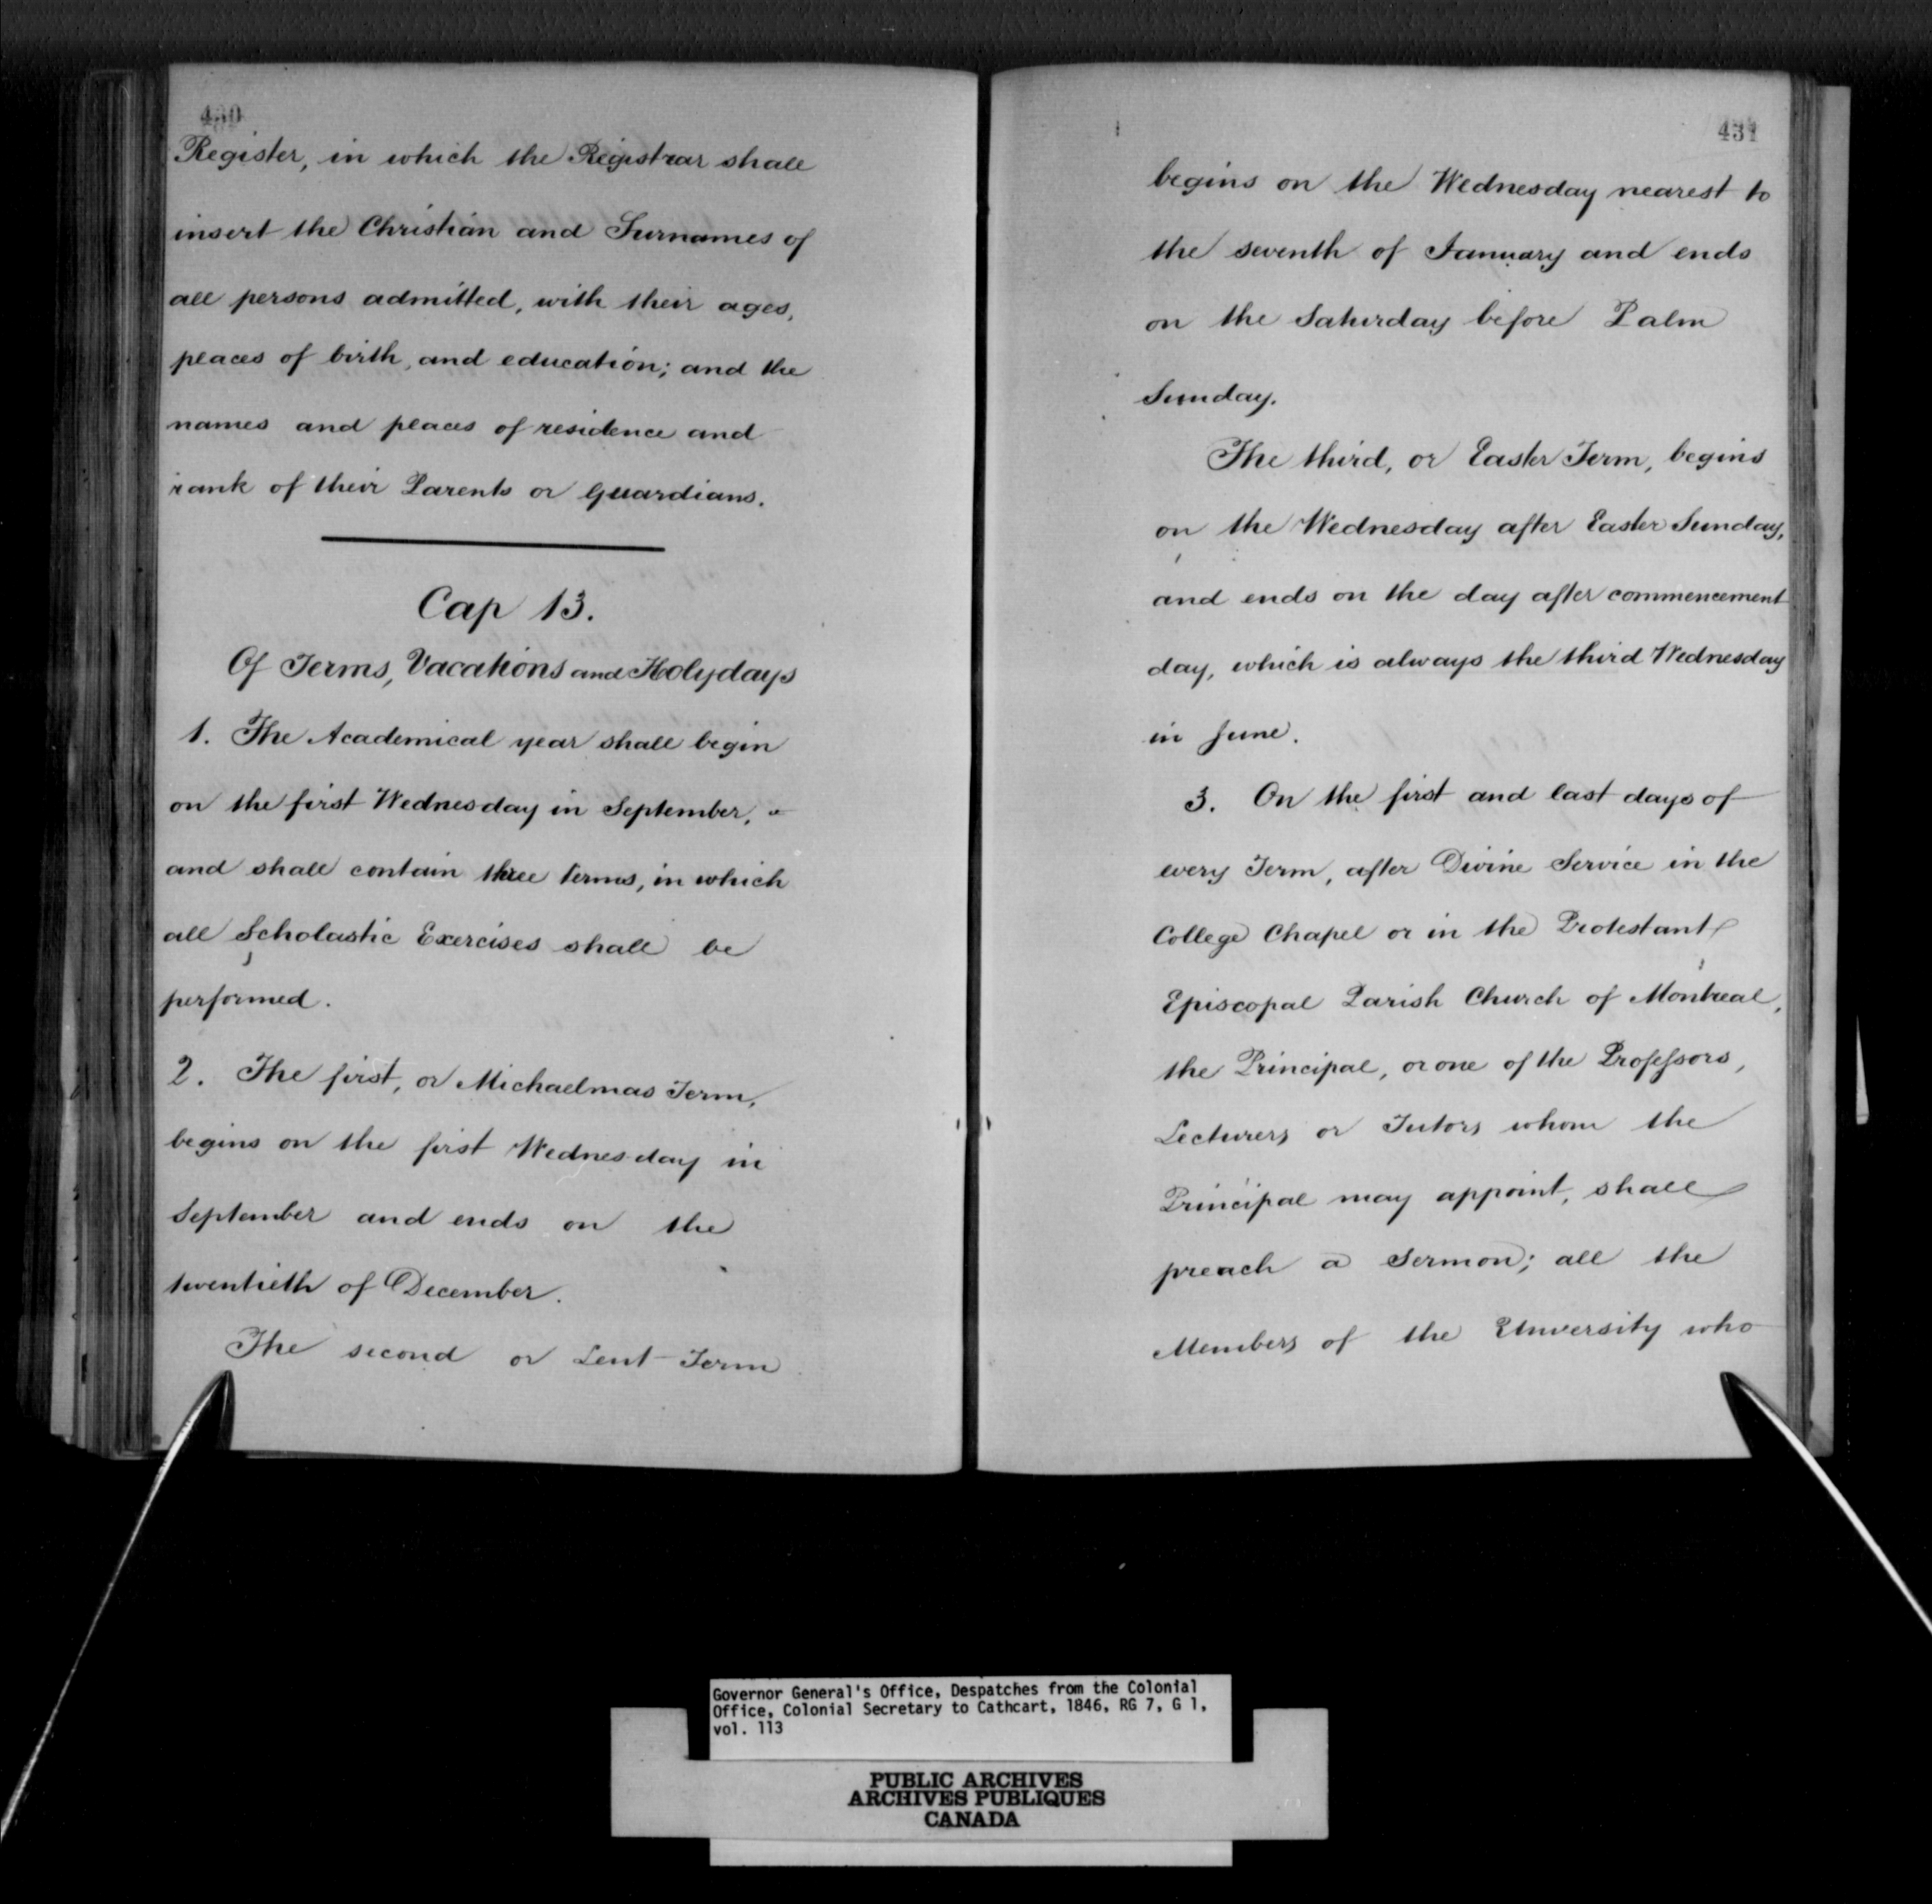 430
Register, in which the Registrar shall
insert the Christian and Surnames of
all persons admitted, with their ages,
places of birth, and education; and the
names and places of residence and
rank of their Parents or Guardians.
Cap 13.
Of Terms, Vacations and Holydays
1. The Academical year shall begin
on the first Wednesday in September,
and shall contain three terms, in which
all Scholastic Exercises shall be
performed.
2. The first, or Michaelmas Term,
begins on the first Wednesday in
September and ends on the
twentieth of December.
The second or Lent Term
431
begins on the Wednesday nearest to
the seventh of January and ends
on the Saturday before Palm
Sunday.
The third, or Easter Term, begins
on the Wednesday after Easter Sunday,
and ends on the day after commencement
day, which is always the third Wednesday
in June.
3. On the first and last days of
every Term, after Divine Service in the
College Chapel or in the Protestant
Episcopal Parish Church of Montreal,
the Principal, or one of the Professors,
Lecturers or Tutors whom the
Principal may appoint, shall
preach a Sermon; all the
Members of the University who
Governor General's Office, Despatches from the Colonial
Office, Colonial Secretary to Cathcart, 1846, RG 7, G 1,
vol. 113
PUBLIC ARCHIVES
ARCHIVES PUBLIQUES
CANADA